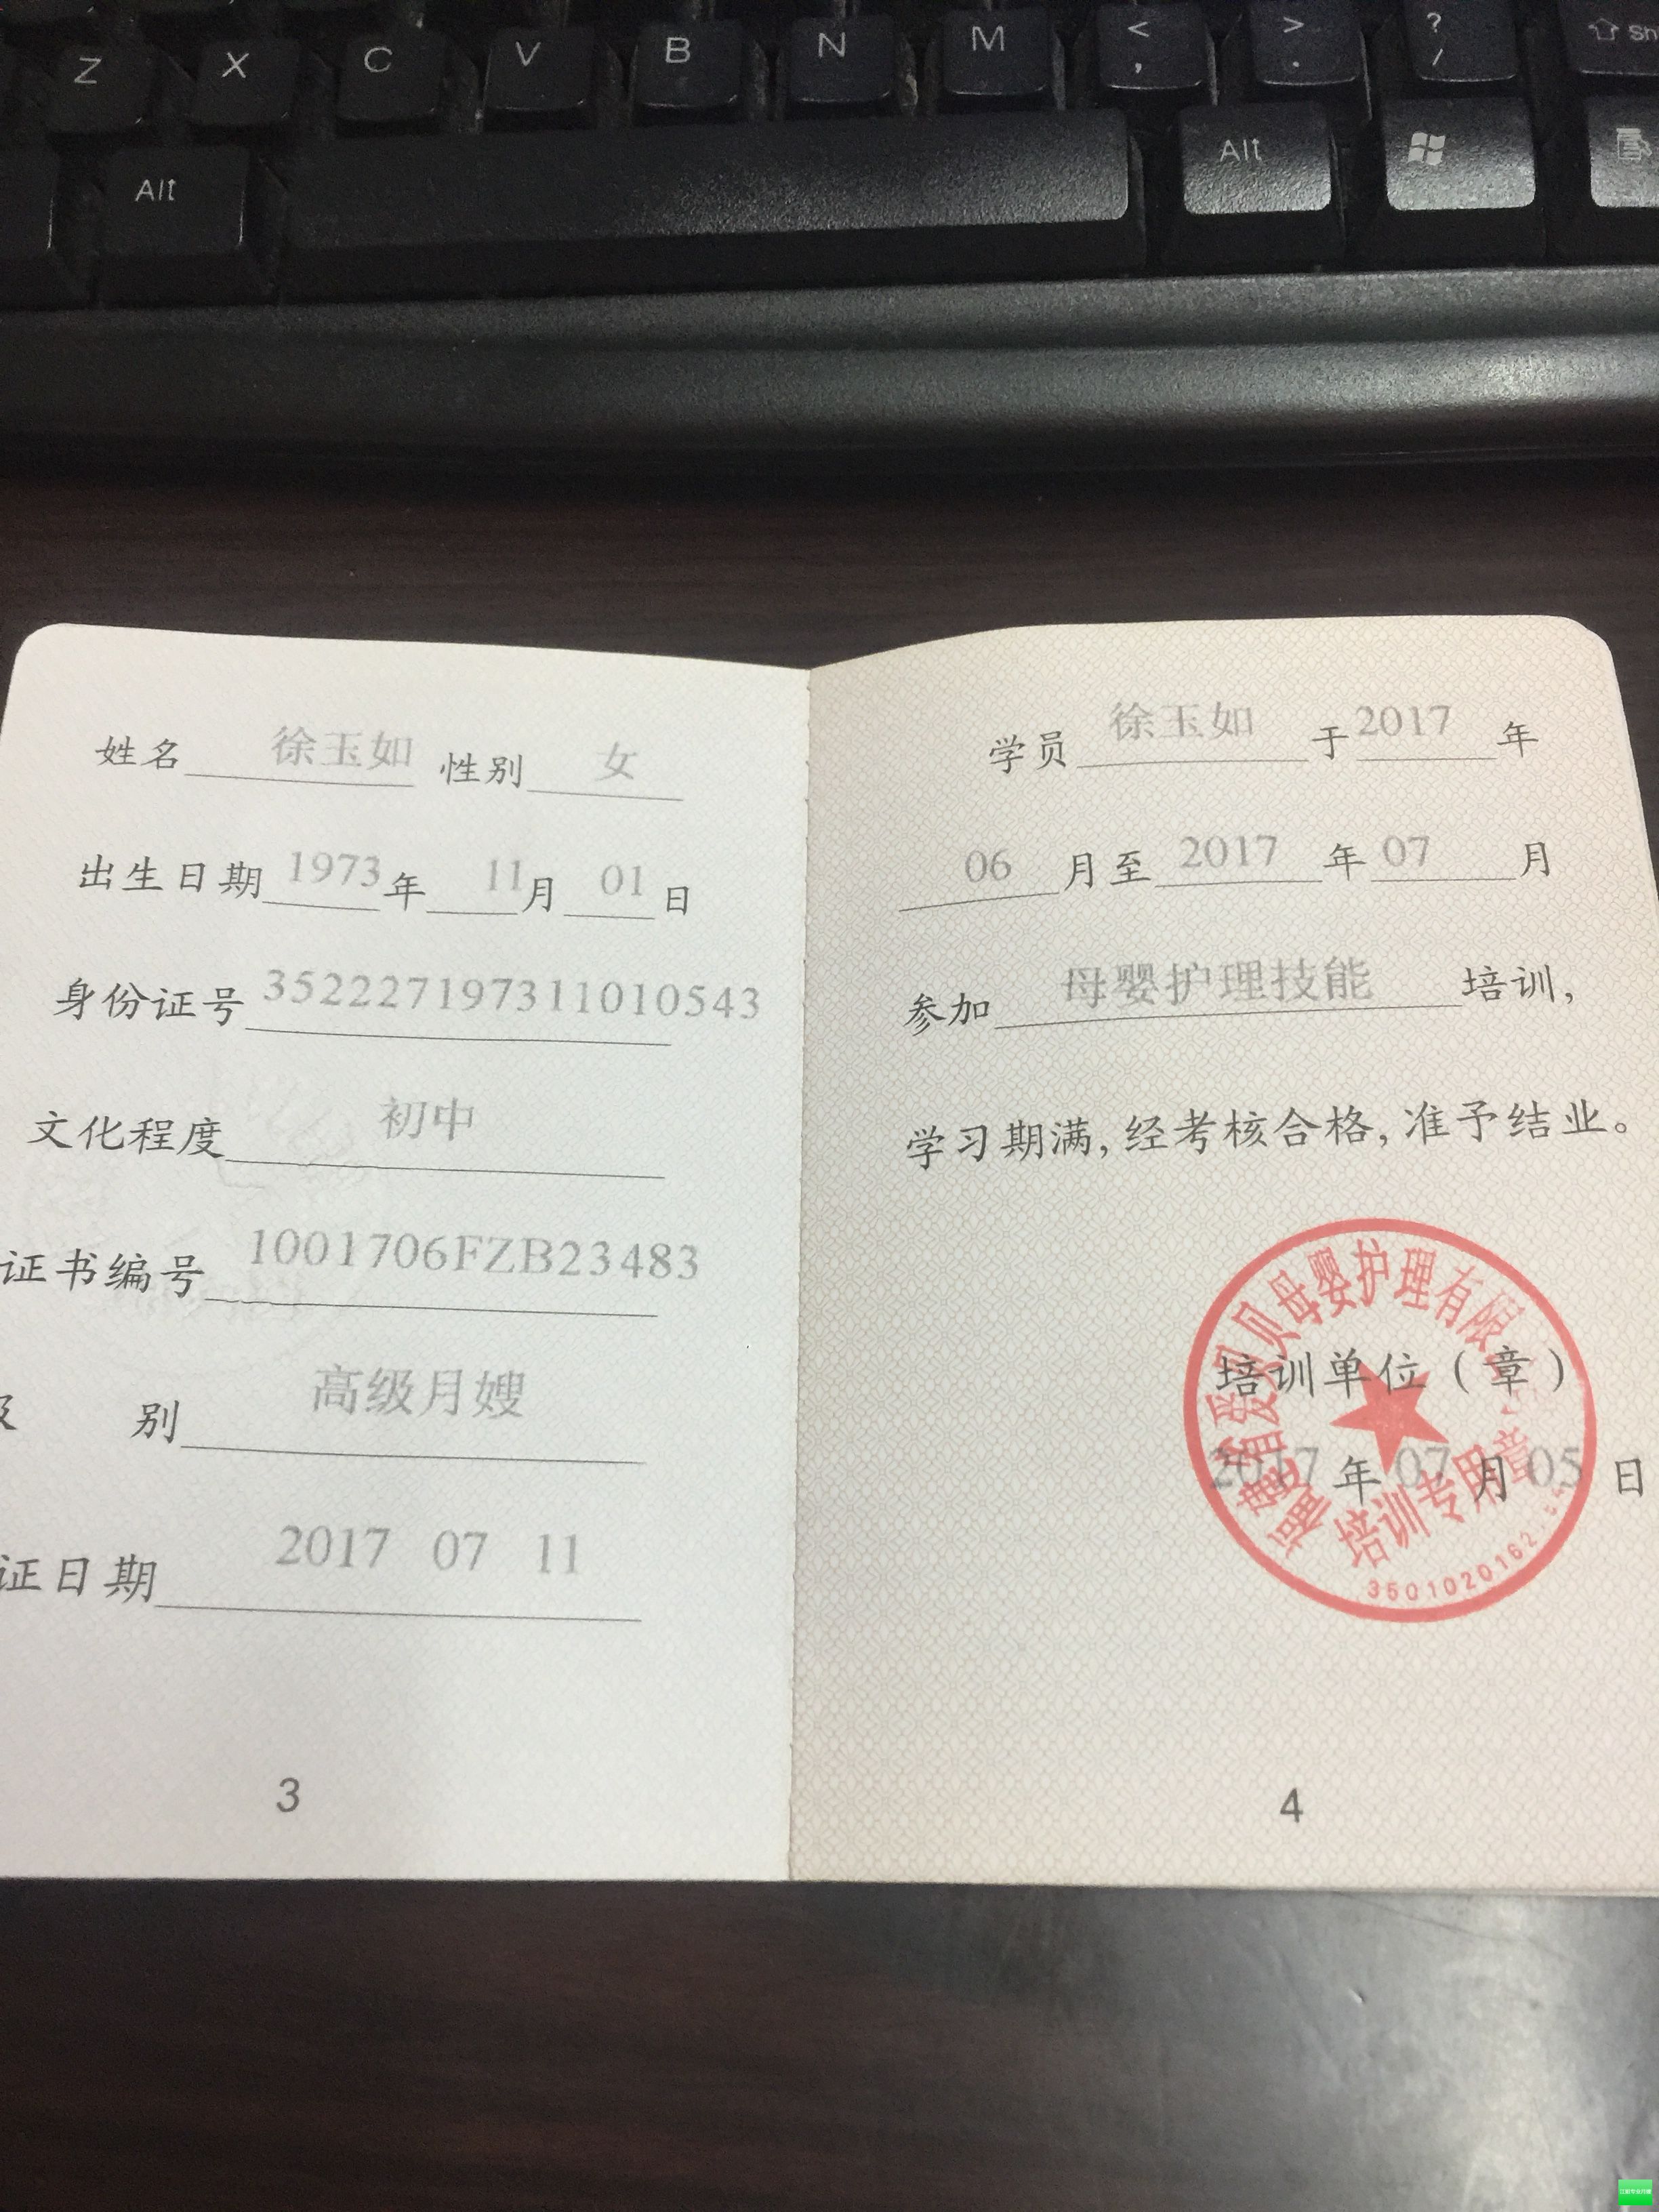 Z X C V B N M < , > . ? /
Alt Alt
姓名 徐玉如 性别 女
出生日期 1973 年 11 月 01 日
身份证号 352227197311010543
文化程度 初中
证书编号 1001706FZB23483
别 高级月嫂
证日期 2017 07 11
3
学员 徐玉如 于 2017 年
06 月至 2017 年 07 月
参加 母婴护理技能 培训,
学习期满,经考核合格,准予结业。
培训单位(章)
2017 年 07 月 05 日
福建省爱贝母婴护理有限
培训专用章
3501020162
4